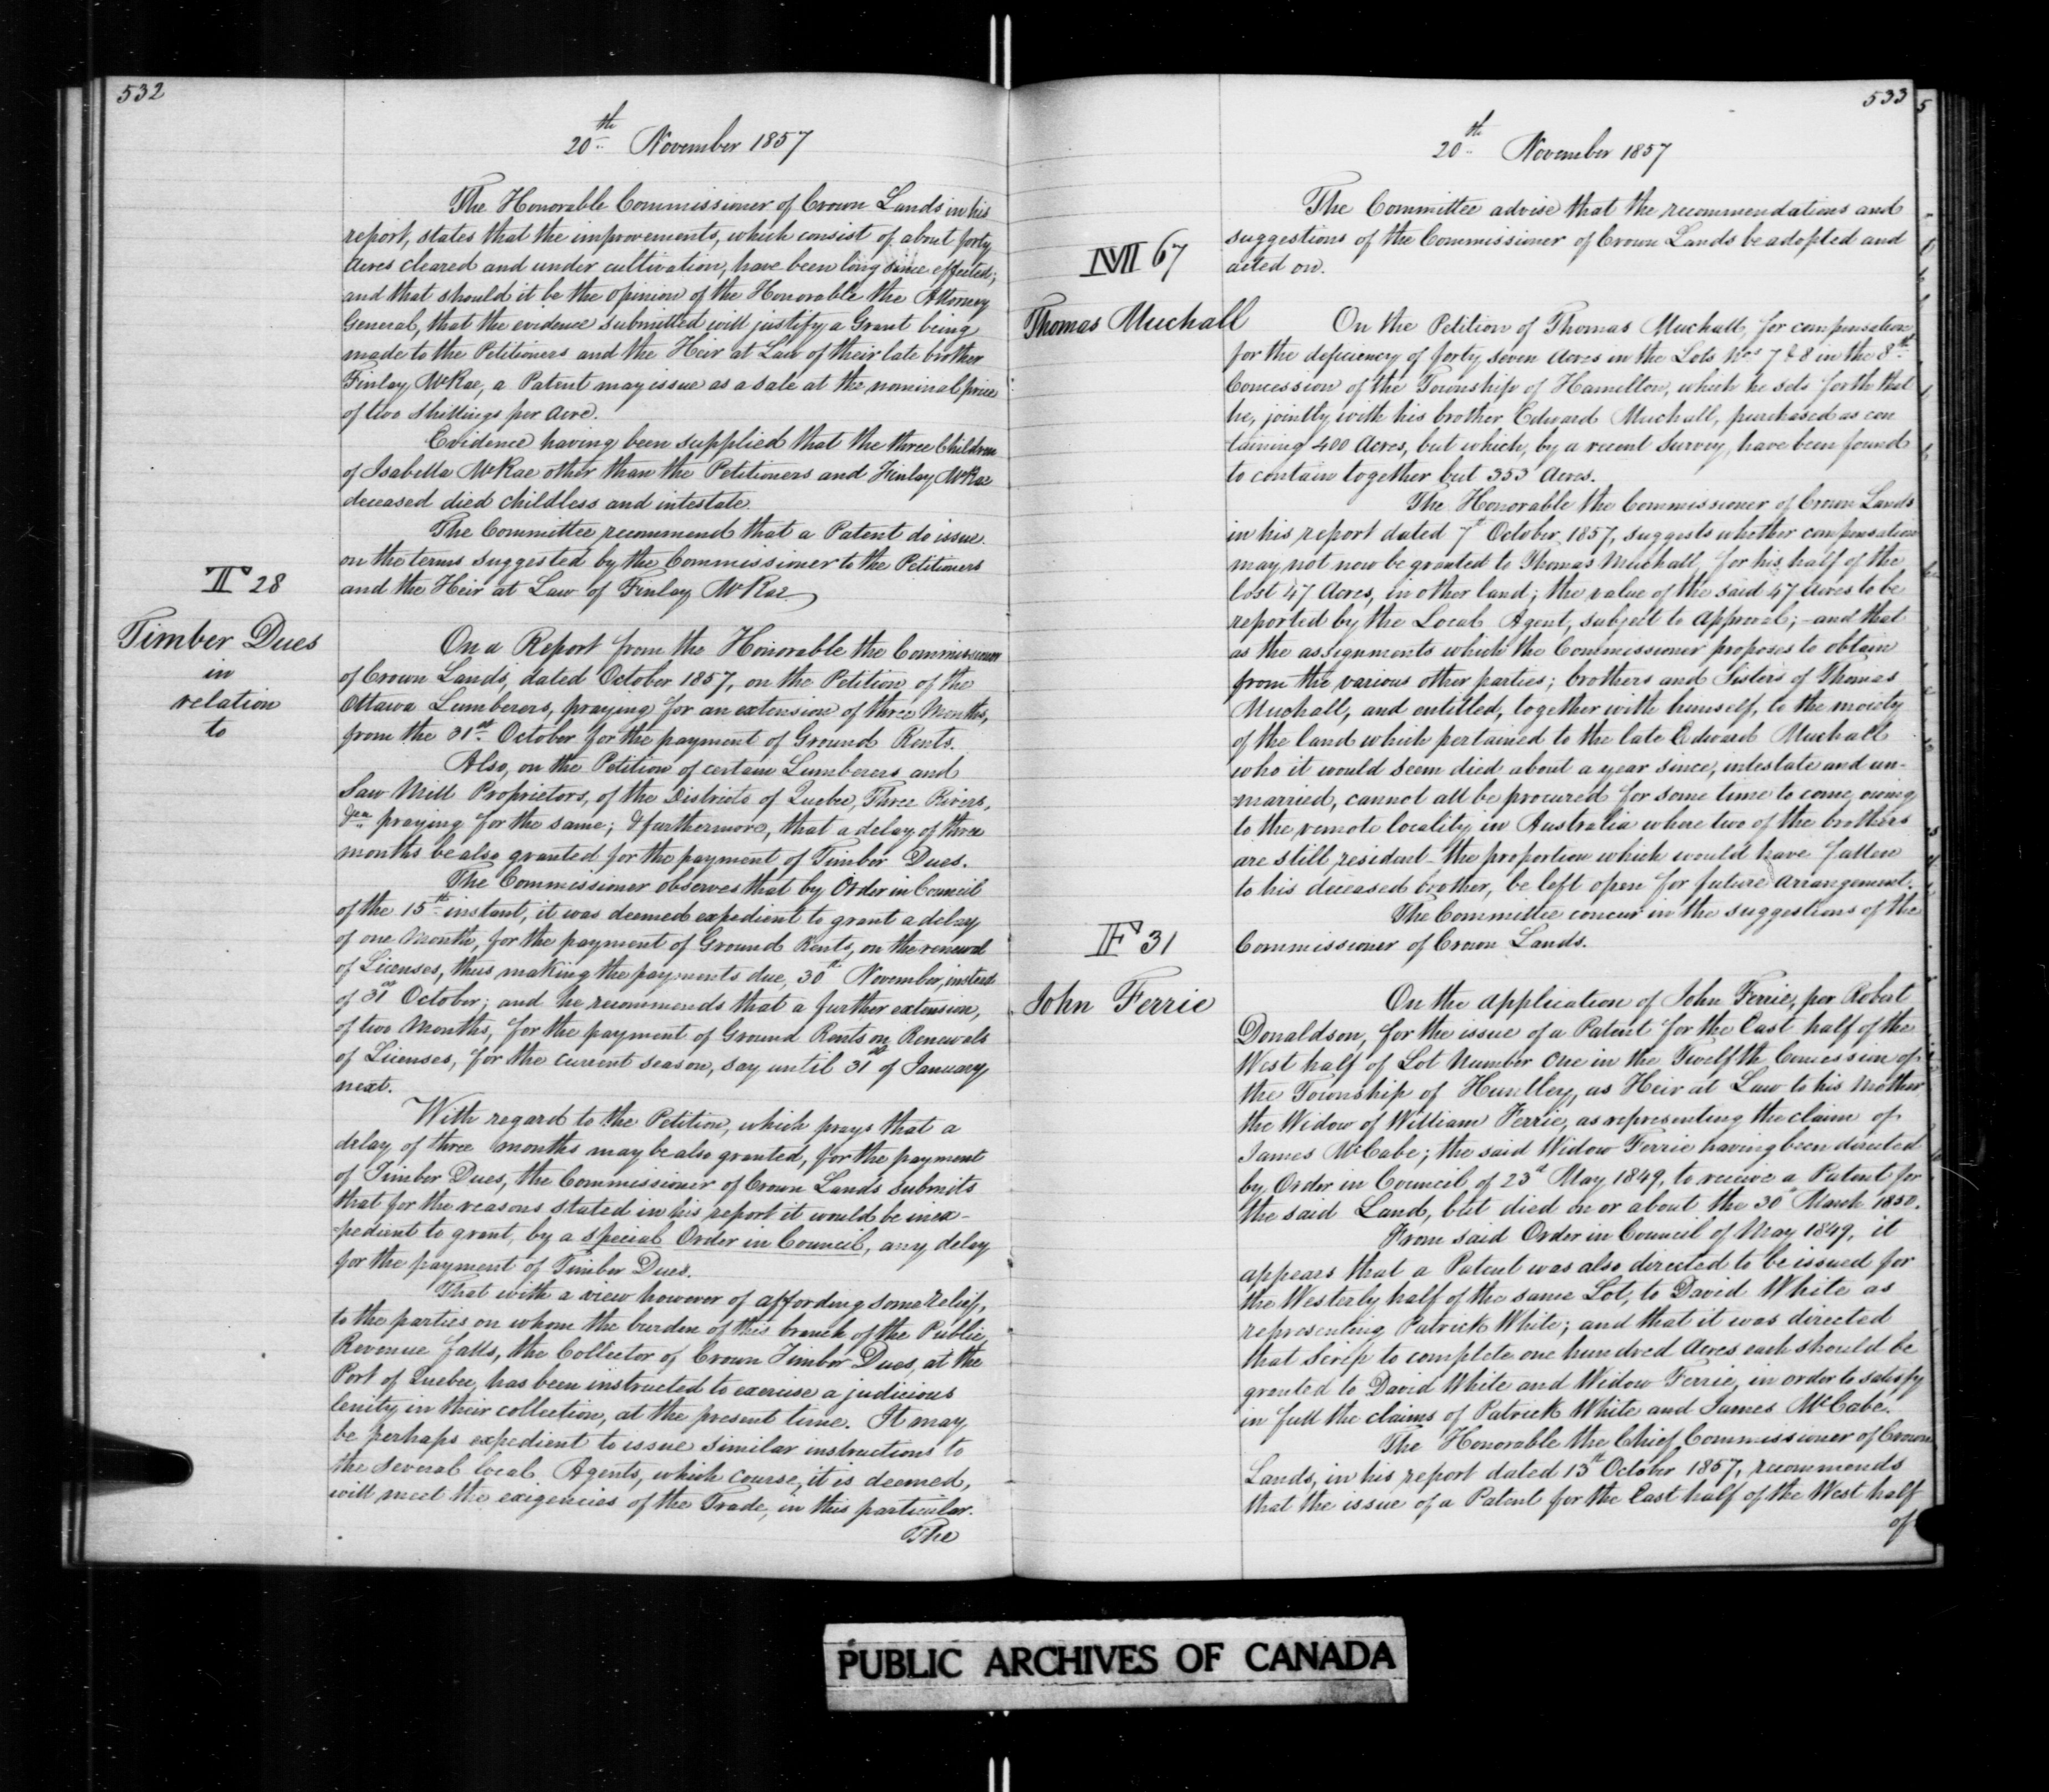 532
20th November 1857
The Honorable Commissioner of Crown Lands in his
report, states that the improvements, which consist of about forty
Acres cleared and under cultivation, have been long since effected;
and that should it be the opinion of the Honorable the Attorney
General, that the evidence submitted will justify a Grant being
made to the Petitioners and the Heir at Law of their late brother
Finlay McRae, a Patent may issue as a sale at the nominal price
of two shillings per Acre.
Evidence having been supplied that the three Children
of Isabella McRae other than the Petitioners and Finlay McRae
deceased died childless and intestate.
The Committee recommend that a Patent do issue
on the terms suggested by the Commissioner to the Petitioners
and the Heir at Law of Finlay McRae
T 28
Timber Dues
in
relation
to
On a Report from the Honorable the Commissioner
of Crown Lands, dated October 1857, on the Petition of the
Ottawa Lumberers, praying for an extension of three Months,
from the 31st October for the payment of Ground Rents.
Also, on the Petition of certain Lumberers and
Saw Mill Proprietors, of the Districts of Quebec, Three Rivers,
&ca praying for the same; & furthermore, that a delay of three
months be also granted for the payment of Timber Dues.
The Commissioner observes that by Order in Council
of the 15th instant, it was deemed expedient to grant a delay
of one Month, for the payment of Ground Rents, on the renewal
of Licenses, thus making the payments due, 30th November, instead
of 31st October; and he recommends that a further extension,
of two Months, for the payment of Ground Rents on Renewals
of Licenses, for the current season, say until 31st of January
next.
With regard to the Petition, which prays that a
delay of three months may be also granted, for the payment
of Timber Dues, the Commissioner of Crown Lands submits
that for the reasons stated in his report it would be inex-
-pedient to grant, by a special Order in Council, any delay
for the payment of Timber Dues.
That with a view however of affording some relief,
to the parties on whom the burden of this branch of the Public
Revenue falls, the Collector of Crown Timber Dues, at the
Port of Quebec, has been instructed to exercise a judicious
lenity in their collection, at the present time. It may
be perhaps expedient to issue similar instructions to
the several local Agents, which course, it is deemed,
will meet the exigencies of the Trade, in this particular.
The
533
20th November 1857
The Committee advise that the recommendations and
suggestions of the Commissioner of Crown Lands be adopted and
acted on.
M 67
Thomas Muchall
On the Petition of Thomas Muchall, for compensation
for the deficiency of forty seven Acres in the Lots Nos 7 & 8 in the 8th
Concession of the Township of Hamilton, which he sets forth that
he, jointly with his brother Edward Muchall, purchased as con
taining 400 Acres, but which, by a recent survey, have been found
to contain together but 353 Acres.
The Honorable the Commissioner of Crown Lands
in his report dated 7th October, 1857, suggests whether compensation
may not now be granted to Thomas Muchall, for his half of the
lost 47 Acres, in other land; the value of the said 47 Acres to be
reported by the Local Agent, subject to approval; – and that
as the assignments which the Commissioner proposes to obtain
from the various other parties; brothers and Sisters of Thomas
Muchall, and entitled, together with himself, to the moiety
of the land which pertained to the late Edward Muchall
who it would seem died about a year since, intestate and un-
-married, cannot all be procured for some time to come, owing
to the remote locality in Australia where two of the brothers
are still resident – the proportion which would have fallen
to his deceased brother, be left open for future arrangement.
The Committee concur in the suggestions of the
Commissioner of Crown Lands.
F 31
John Ferrie
On the application of John Ferrie, per Robert
Donaldson, for the issue of a Patent for the East half of the
West half of Lot Number One in the Twelfth Concession of
the Township of Huntley, as Heir at Law to his Mother
the Widow of William Ferrie, as representing the claim of
James McCabe; the said Widow Ferrie having been directed
by Order in Council of 23d May 1849, to receive a Patent for
the said Land, but died on or about the 30th March 1850.
From said Order in Council of May 1849, it
appears that a Patent was also directed to be issued for
the Westerly half of the same Lot, to David White as
representing Patrick White; and that it was directed
that Scrip to complete one hundred Acres each should be
granted to David White and Widow Ferrie, in order to satisfy
in full the claims of Patrick White and James McCabe.
The Honorable the Chief Commissioner of Crown
Lands, in his report dated 13th October 1857, recommends
that the issue of a Patent for the East half of the West half
of
PUBLIC ARCHIVES OF CANADA